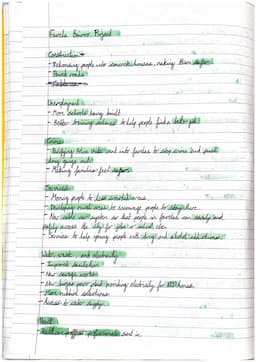 Favela Bairro Project
Construction
- Rehousing people into concrete houses, making them safer
- Paved roads
Unemployment
- More schools being built
- Better training to help people find a better job
Crime
- police units out into favelas to stop crime and
drug gangs out
- Making favelas feel safer
Services
- Moving people to less areas
- rural area to encourage people to stay there
- New cable car system so that people in favelas can easily and
safely access the city for jobs or school etc.
- Services to help young people with drug and alcohol addictions.
Water, waste and electricity
- Improved sanitation
- New sewage works
- New power plant providing electricity for houses
- Access to safe supply